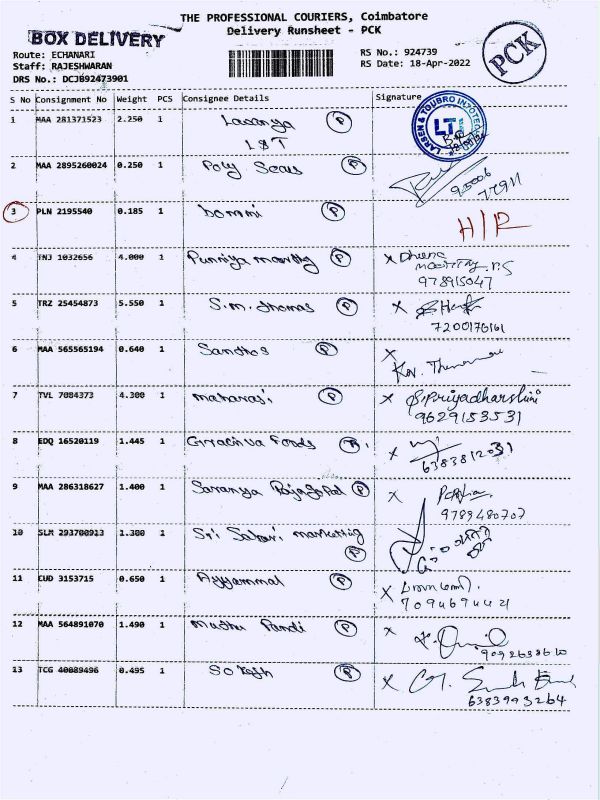 THE PROFESSIONAL COURIERS, Coimbatore
Delivery Runsheet - PCK
BOX DELIVERY
PCK
Route: ECHANARI
Staff: RAJESHWARAN
DRS No.: DCJ892473901
RS No.: 924739
RS Date: 18-Apr-2022
S No Consignment No Weight PCS Consignee Details Signature
1 MAA 281371523 2.250 1 Lavanya P
L&T
LARSEN & TOUBRO INFOTECH
LTI
2 MAA 2895260024 0.250 1 Poly Seals P
95006
77911
3 PLN 2195540 0.185 1 bommi P H/R
4 TNJ 1032656 4.000 1 Punniya P X
978915047
5 TRZ 25454873 5.550 1 S.M. Thomas P X
7200176161
6 MAA 565565194 0.640 1 Santhos P X
7 TVL 7084373 4.300 1 maharasi P X S.Priyadharshini
9629153531
8 EDQ 16520119 1.445 1 Foods X
6383812031
9 MAA 286318627 1.400 1 Saranya Rajagopal P X
9789480707
10 SLM 293700913 1.300 1 Sri Sabari marketting
P
11 CUD 3153715 0.650 1 Ayyammal P X
7094694421
12 MAA 564891070 1.490 1 Muthu Pandi P X
9092638610
13 TCG 40089496 0.495 1 P X
6383993264